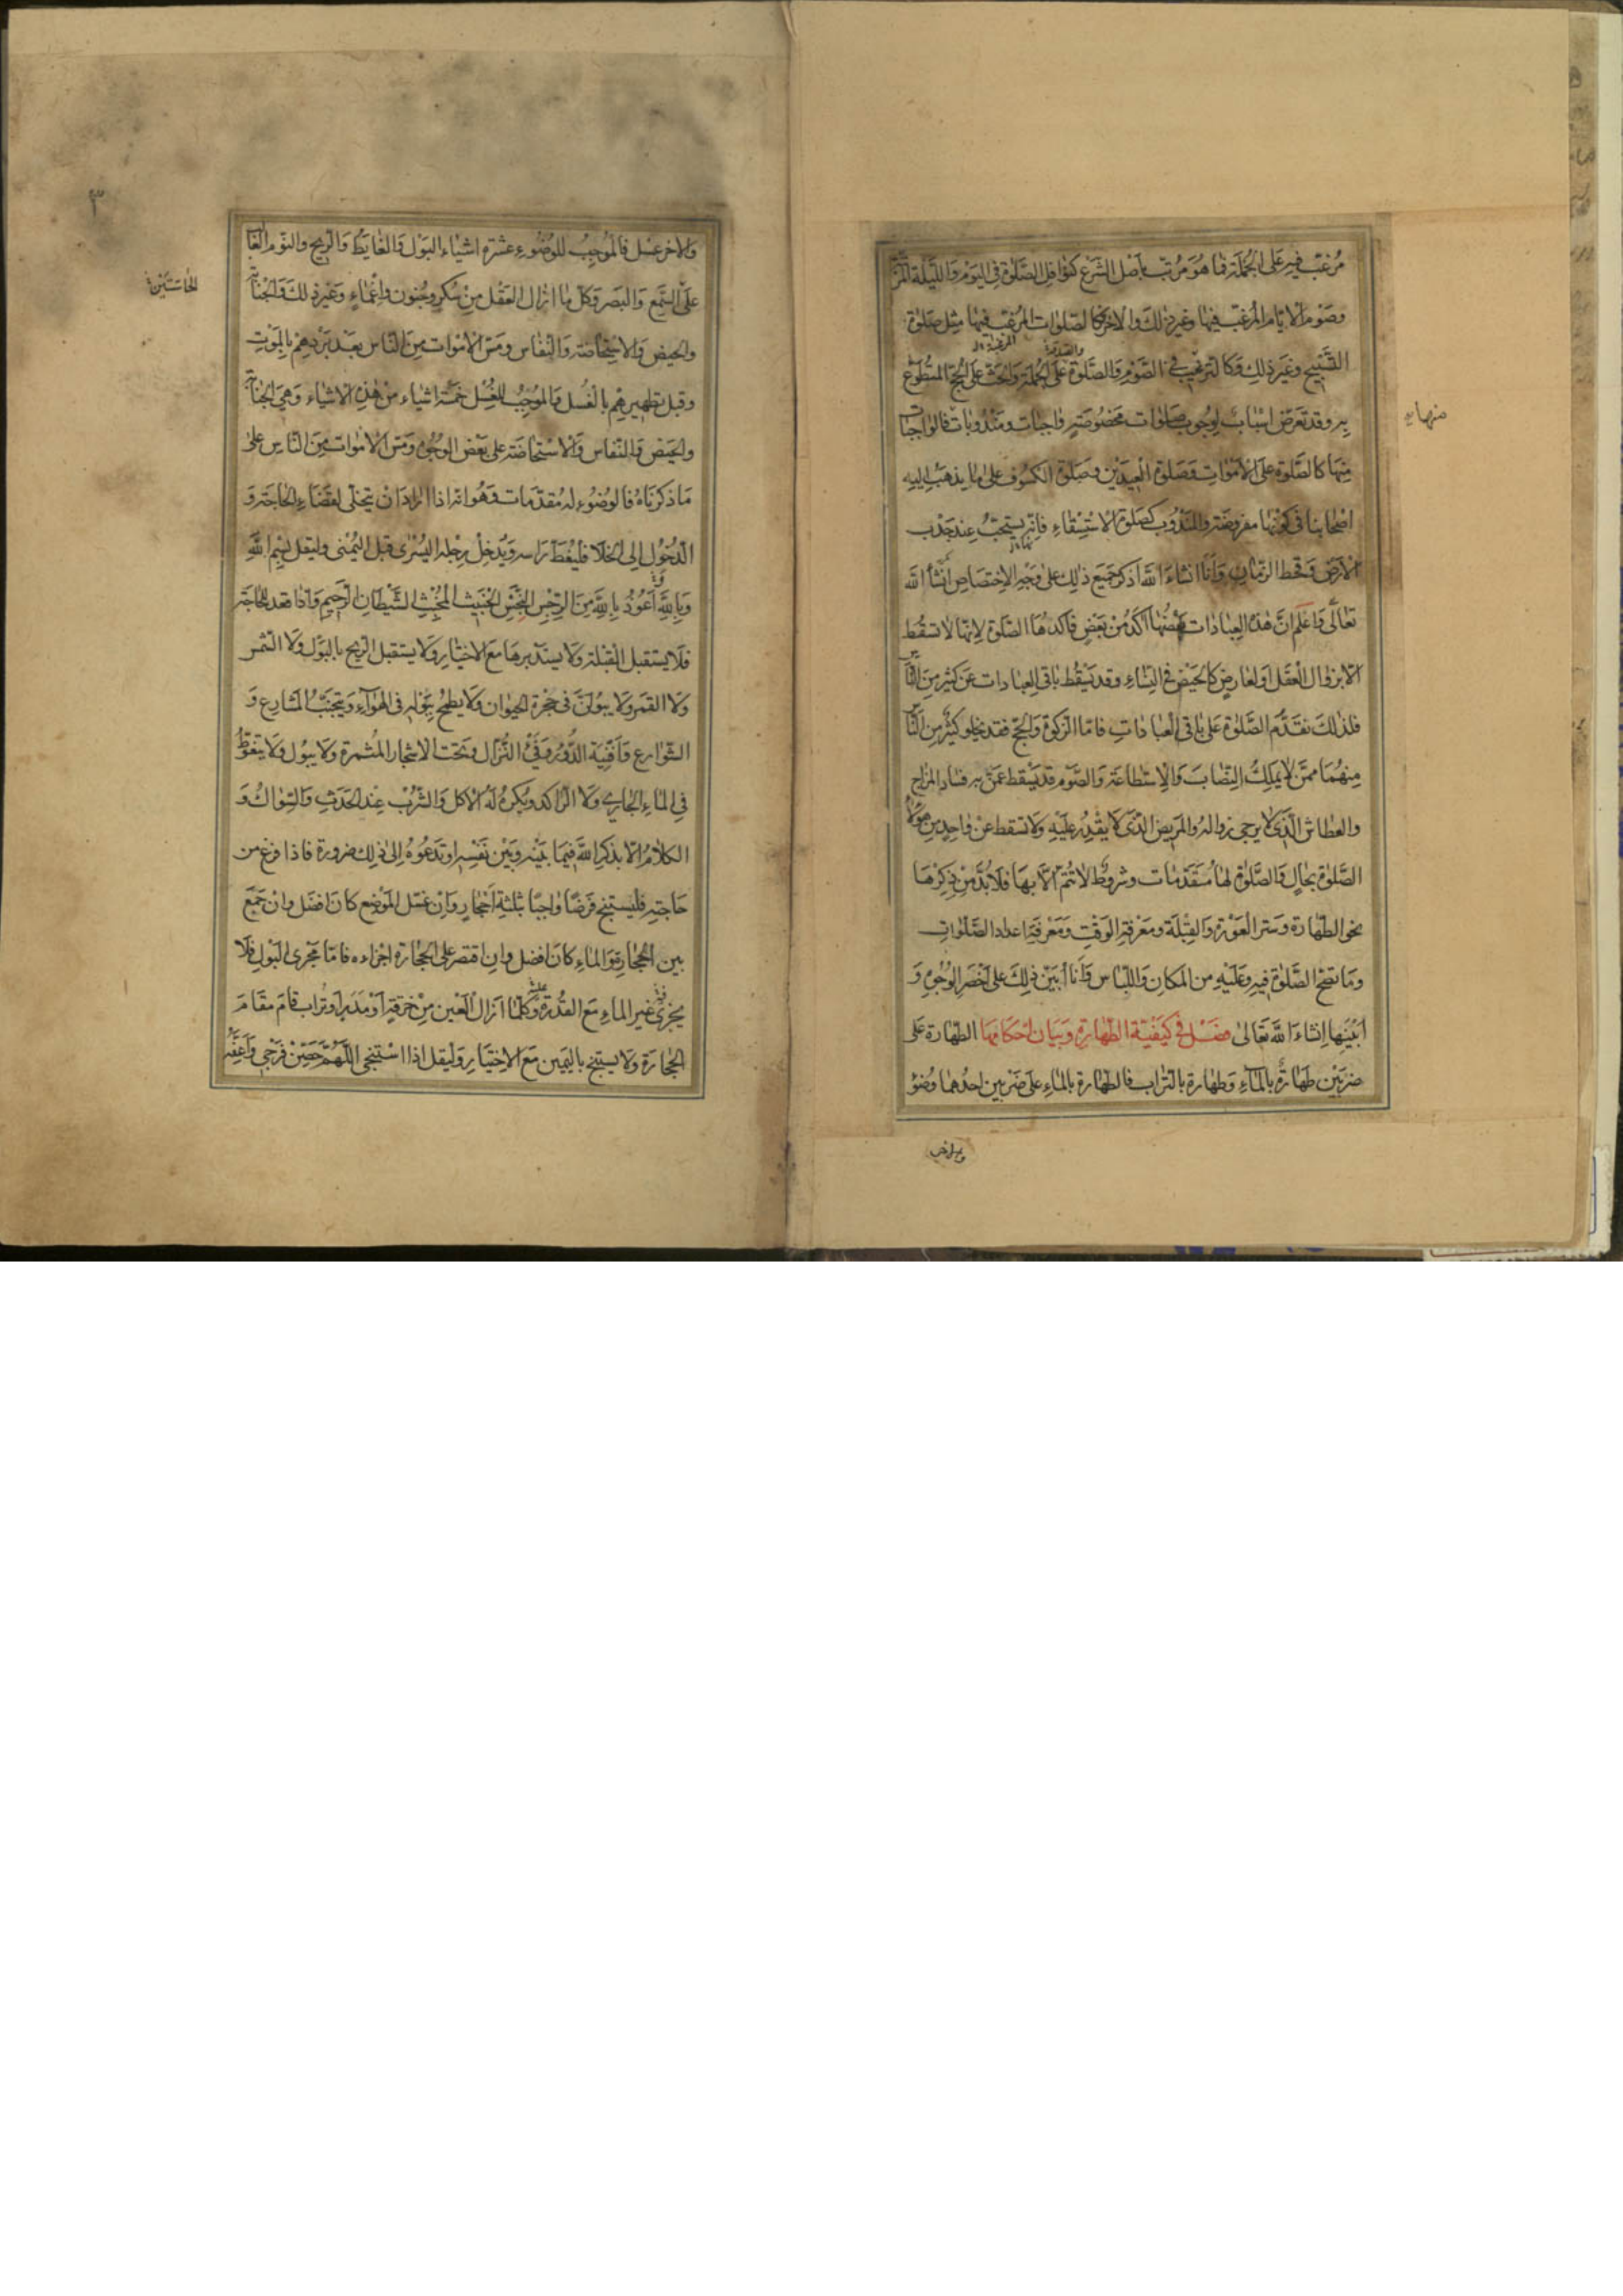 مُرغّب فيه على الجملة فما هو مرتّب بأصل الشرع كنوافل الصلوة في اليوم والليلة
وصوم الايام المرغّب فيها وغير ذلك والاخر كالصلوات المرغّب فيها مثل صلوة
التسبيح وغير ذلك وكالترغيب في الصوم والصلوة على الجملة والحث على الحج المتطوع
والصدقة
به وقد تعرض اسباب لوجوب صلوات مخصوصة واجبات ومندوبات فالواجبات
منها كالصلوة على الاموات وصلوة العيدين وصلوة الكسوف على ما يذهب اليه
اصحابنا في كونها مفروضة والمندوب كصلوة الاستسقاء فانه يستحب عند جدب
الارض وقحط الزمان وانا انشاء الله اذكر جميع ذلك على وجه الاختصاص انشاء الله
تعالى واعلم ان هذه العبادات بعضها آكد من بعض فآكدها الصلوة لانها لا تسقط
الا بزوال العقل او لعارض كالحيض في النساء وقد يسقط باقي العبادات عن كثير من الناس
فلذلك نقدّم الصلوة على باقي العبادات فاما الزكوة والحج فقد يخلو كثير من الناس
منهما ممن لا يملك النصاب والاستطاعة والصوم قد يسقط عمن به فساد المزاج
والعطاش الذي لا يرجى زواله والمريض الذي لا يقدر عليه ولا تسقط عن واحد من هؤلاء
الصلوة بحال والصلوة لها مقدمات وشروط لا تتم الا بها فلا بد من ذكرها
نحو الطهارة وستر العورة والقبلة ومعرفة الوقت ومعرفة اعداد الصلوات
وما تصح الصلوة فيه وعليه من المكان واللباس وانا أبين ذلك على أخصر الوجوه و
ابينها انشاء الله تعالى فصل في كيفية الطهارة وبيان احكامها الطهارة على
ضربين طهارة بالماء وطهارة بالتراب فالطهارة بالماء على ضربين احدهما وضوء
منهابه
والاخر غسل
٣
والاخر غسل فالموجب للوضوء عشرة اشياء البول والغايط والريح والنوم الغالب
على السمع والبصر وكل ما ازال العقل من سكر وجنون واغماء وغير ذلك والجنابة
والحيض والاستحاضة والنفاس ومس الاموات من الناس بعد بردهم بالموت
وقبل تطهيرهم بالغسل والموجب للغسل خمسة اشياء من هذه الاشياء وهي الجنابة
والحيض والنفاس والاستحاضة على بعض الوجوه ومس الاموات من الناس على
ما ذكرناه فالوضوء له مقدمات وهو انه اذا اراد ان يتخلى لقضاء الحاجة و
الدخول الى الخلا فليغط راسه ويدخل رجله اليسرى قبل اليمنى وليقل بسم الله
وبالله أعوذ بالله من الرجس النجس الخبيث المخبث الشيطان الرجيم واذا قعد للحاجة
فلا يستقبل القبلة ولا يستدبرها مع الاختيار ولا يستقبل الريح بالبول ولا الشمس
ولا القمر ولا يبولن في جحرة الحيوان ولا يطمح ببوله في الهواء ويتجنب المشارع و
الشوارع وافنية الدور وفيء النزال وتحت الاشجار المثمرة ولا يبول ولا يتغوط
في الماء الجاري ولا الراكد ويكره له الاكل والشرب عند الحدث والسواك و
الكلام الا بذكر الله فيما بينه وبين نفسه او تدعوه الى ذلك ضرورة فاذا فرغ من
حاجته فليستنج فرضا واجبا بثلثة احجار وان غسل الموضع كان افضل وان جمع
بين الحجارة والماء كان افضل وان اقتصر على الحجارة اجزاءه فاما مجرى البول فلا
يجزي غير الماء مع القدرة وكلما ازال العين من خرقة او مدر او تراب قام مقام
عليه
الحجارة ولا يستنج باليمين مع الاختيار وليقل اذا استنجى اللهم حصن فرجي واعفه